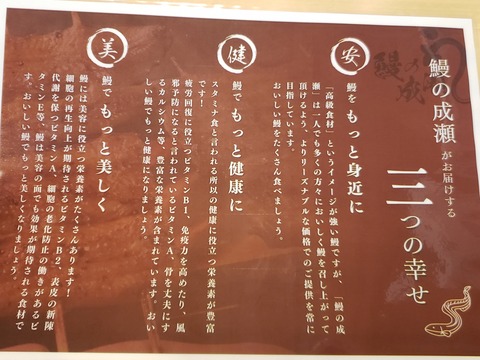 鰻の成瀬がお届けする
三つの幸せ
安
鰻をもっと身近に
「高級食材」というイメージが強い鰻ですが、「鰻の成
瀬」は一人でも多くの方々においしく鰻を召し上がって
頂けるよう、よりリーズナブルな価格でのご提供を常に
目指しています。
おいしい鰻をたくさん食べましょう。
健
鰻でもっと健康に
スタミナ食と言われる所以の健康に役立つ栄養素が豊富
です!
疲労回復に役立つビタミンB1、免疫力を高めたり、風
邪予防になると言われているビタミンA、骨を丈夫にす
るカルシウム等、豊富な栄養素が含まれています。おい
しい鰻でもっと健康になりましょう。
美
鰻でもっと美しく
鰻には美容に役立つ栄養素がたくさんあります!
細胞の再生向上が期待されるビタミンB2、表皮の新陳
代謝を保つビタミンA、細胞の老化防止の働きがあるビ
タミンE等、鰻は美容の面でも効果が期待される食材で
す。おいしい鰻でもっと美しくなりましょう。